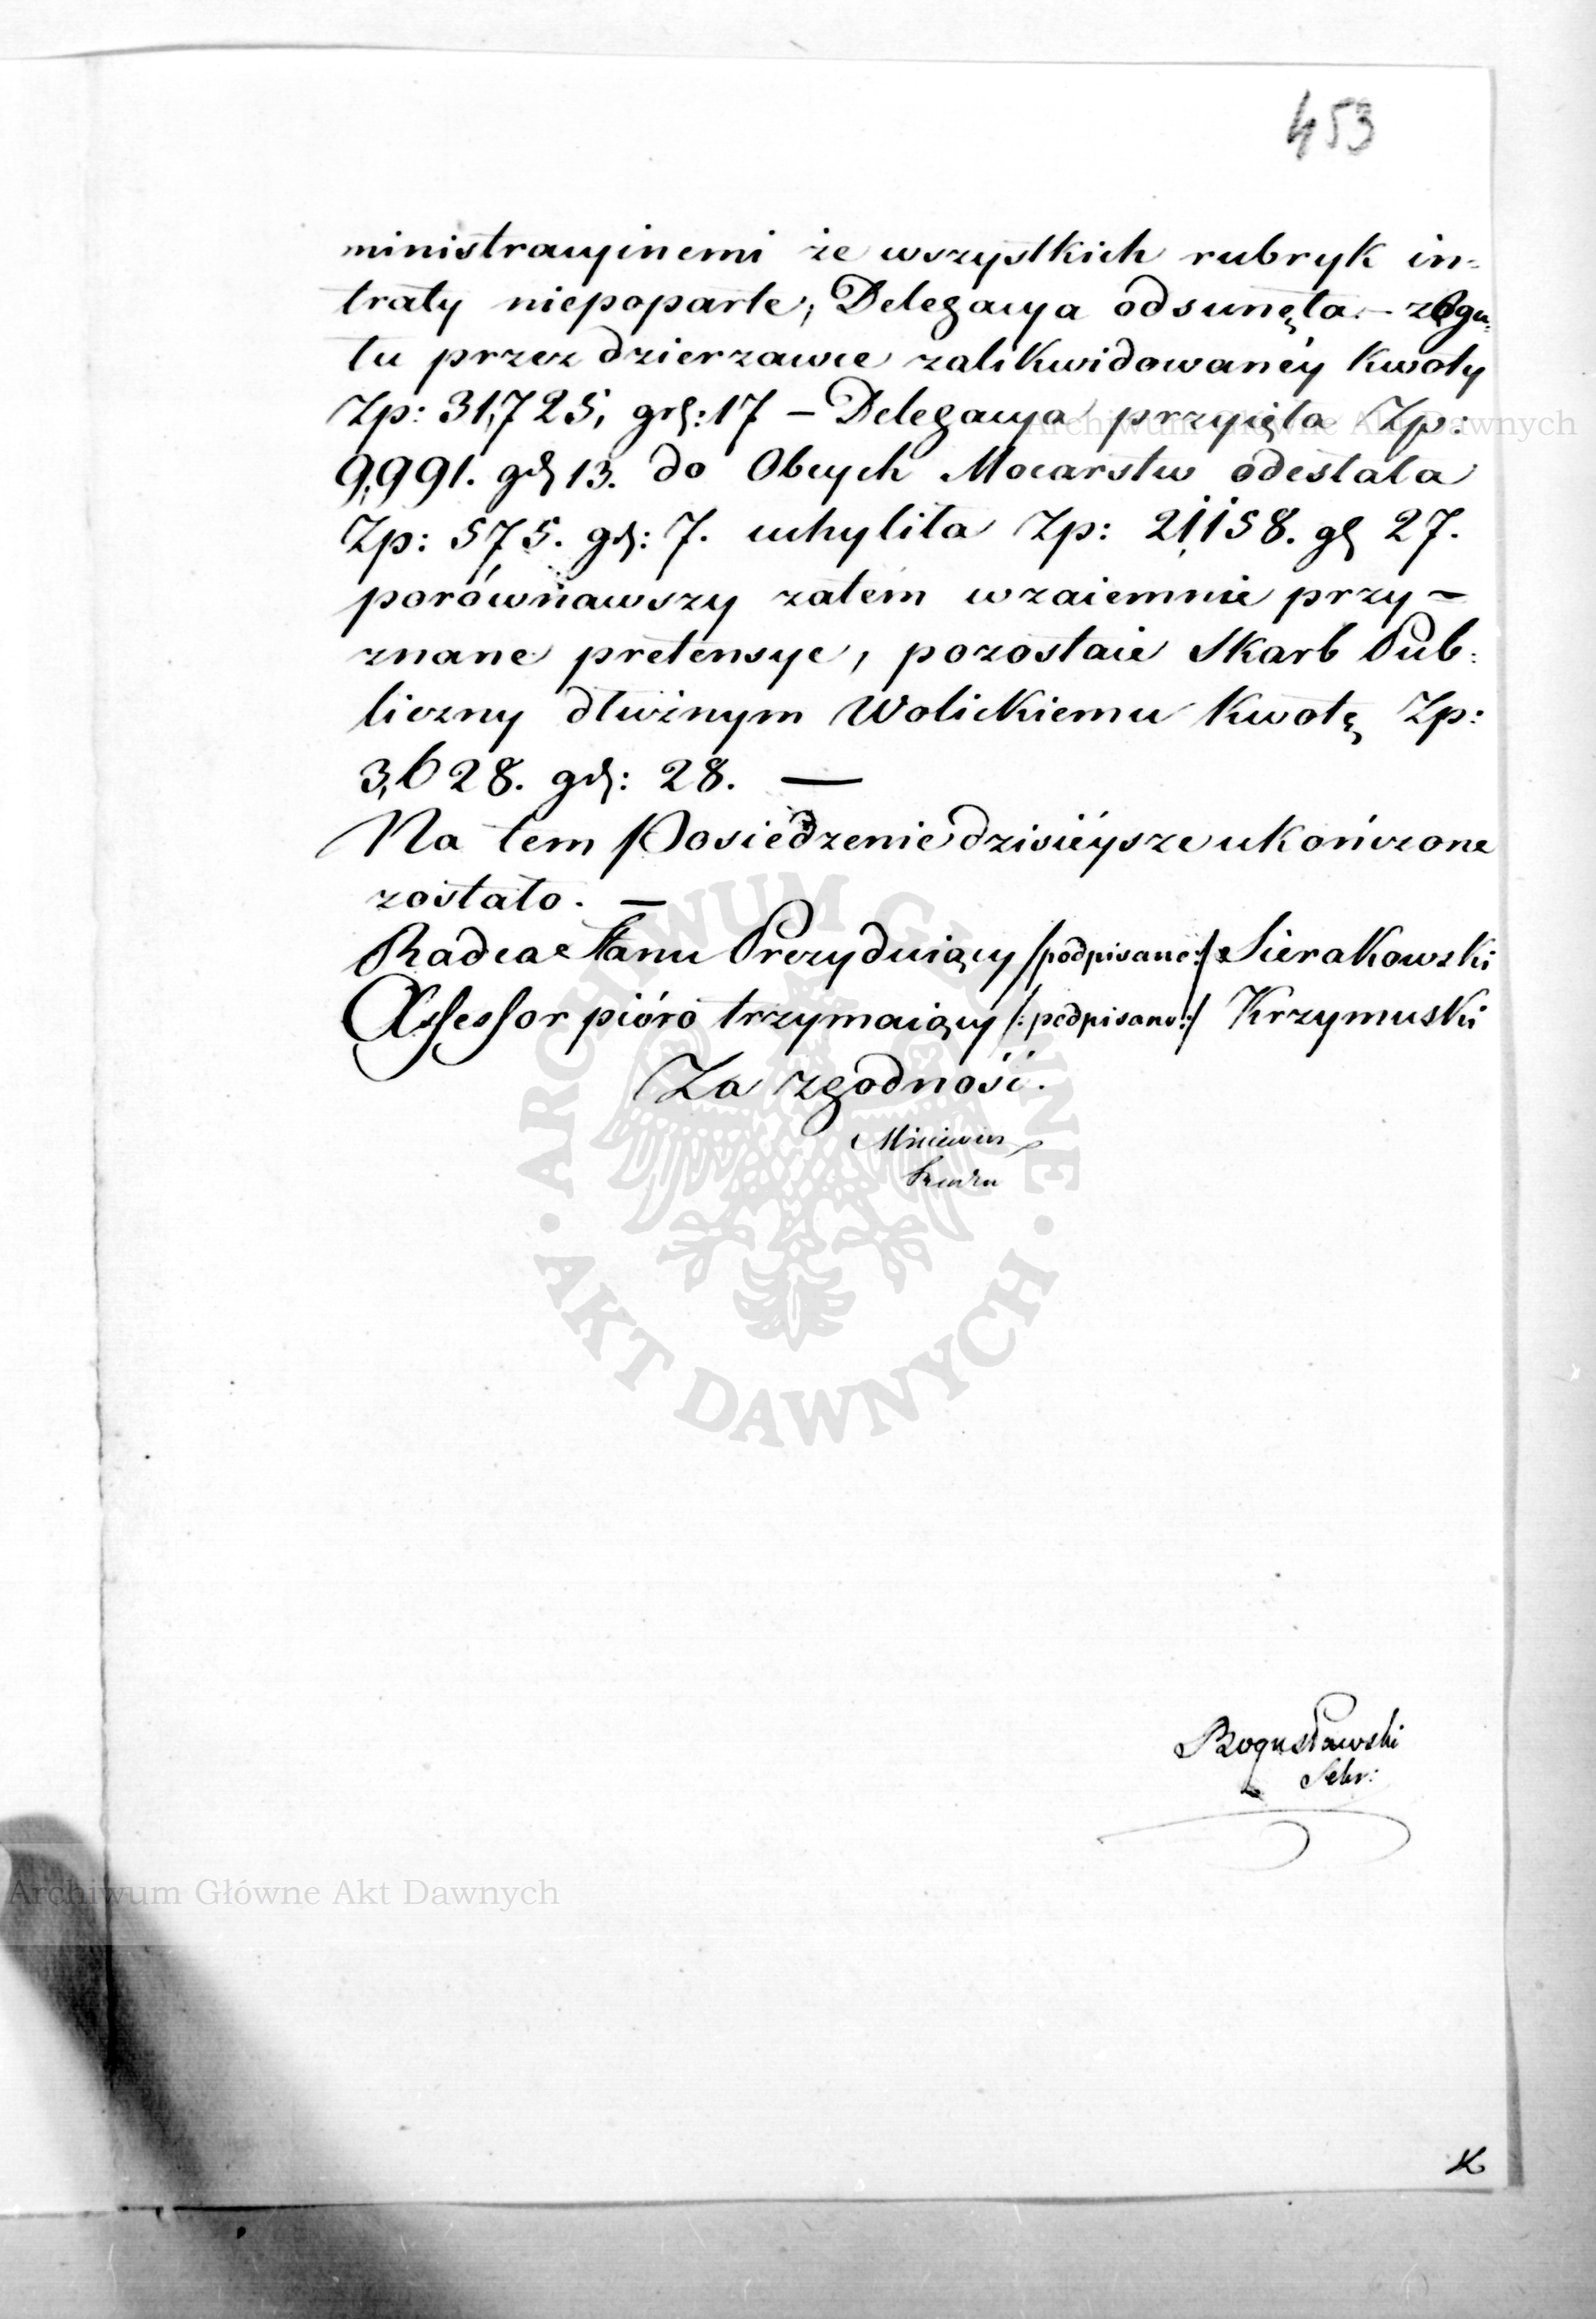 453
ministracyinemi że wszystkich rubryk in-
traty niepoparte, Delegacya odsunęła. –
tu przez dzierzawcę zalikwidowanéy Kwoty
Zp: 31,725, gr: 17 – Delegacya przyięła Zp:
9,991. gr 13. do Obcych Mocarstw odesłała
Zp: 575. gr: 7. uchyliła Zp: 21,158. gr 27.
porównawszy zatém wzaiemnie przy-
znane pretensye, pozostaie Skarb Pub:
liczny dłużnym Wolickiemu Kwotę Zp:
3,628. gr: 28. —
Na tem Posiedzenie dzisiéysze ukończone
zostało. —
Radca Stanu Prezyduiący /podpisano:/ Sierakowski
Assessor pióro trzymaiący /:podpisano:/ Krzymuski
Za zgodność.
Bogusławski
Sekr:
Archiwum Główne Akt Dawnych
ARCHIWUM GŁÓWNE · AKT DAWNYCH ·
Archiwum Główne Akt Dawnych